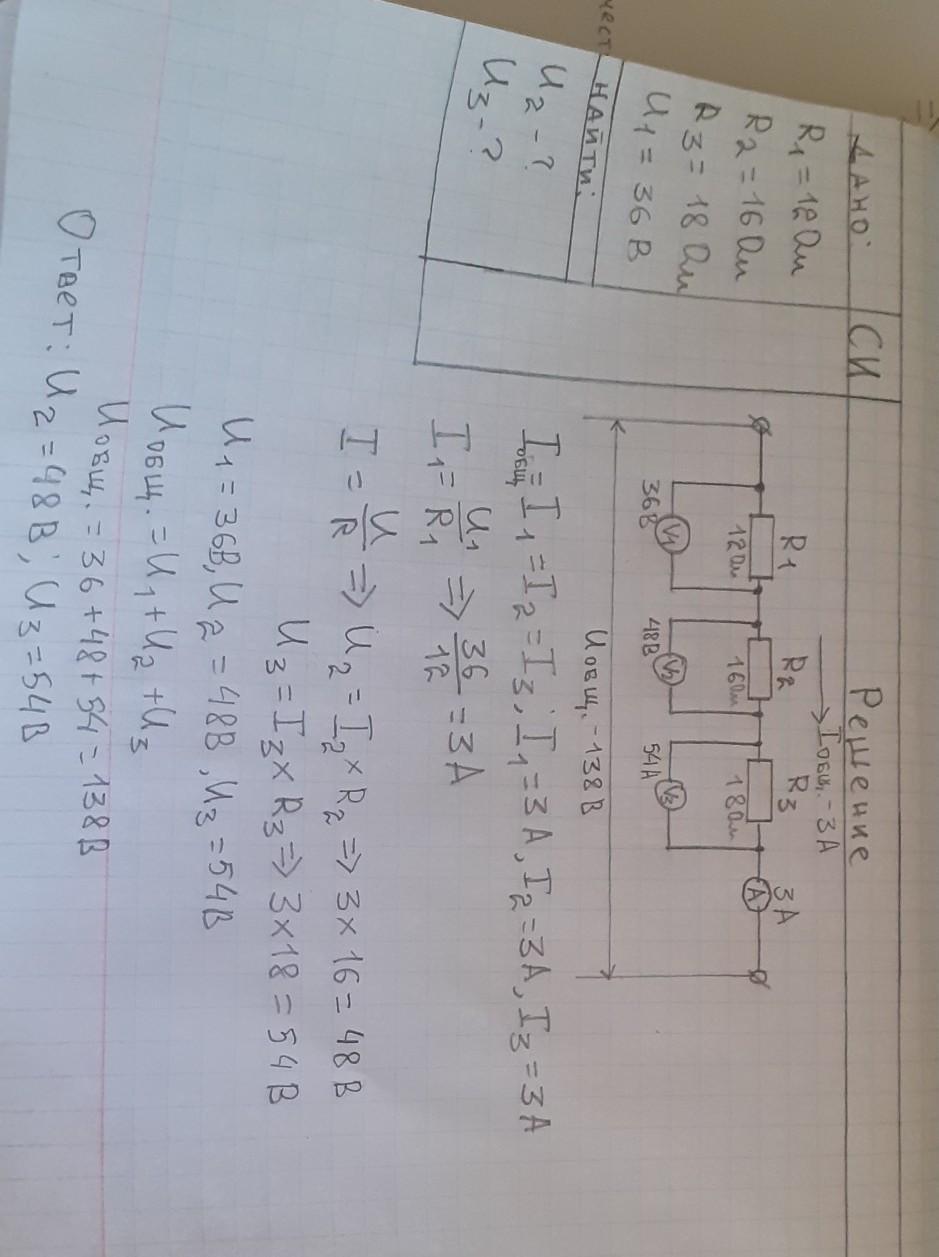 Дано:
СИ
Решение
R1=12Ом
R2=16Ом
R3=18Ом
U1=36В
Найти:
U2-?
U3-?
Iобщ.-3А
R1
R2
R3
3А
12Ом
16Ом
18Ом
А
V1
V2
V3
36В
48В
54А
Uобщ.-138В
Iобщ=I1=I2=I3; I1=3А, I2=3А, I3=3А
I1=U1/R1 => 36/12=3А
I=U/R => U2=I2×R2 => 3×16=48В
U3=I3×R3 => 3×18=54В
U1=36В, U2=48В, U3=54В
Uобщ.=U1+U2+U3
Uобщ.=36+48+54=138В
Ответ: U2=48В; U3=54В